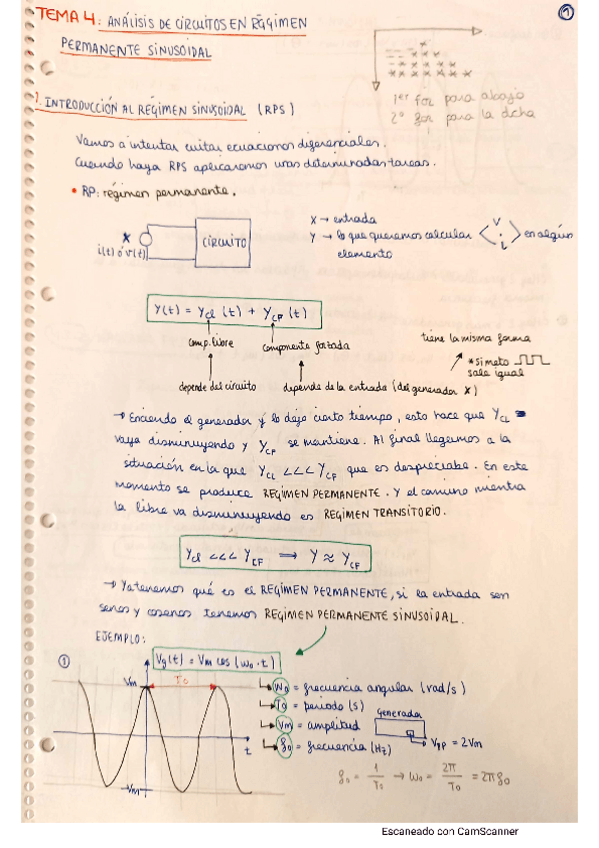 TEMA 4: ANÁLISIS DE CIRCUITOS EN RÉGIMEN
PERMANENTE SINUSOIDAL
1
1er for para abajo
2º for para la dcha
1. INTRODUCCIÓN AL RÉGIMEN SINUSOIDAL (RPS)
Vamos a intentar evitar ecuaciones diferenciales.
Cuando haya RPS aplicaremos unas determinadas tareas.
• RP: régimen permanente.
X
i(t) ó v(t)
CIRCUITO
X → entrada
Y → lo que queramos calcular < v i > en algún
elemento
Y(t) = YCL (t) + YCF (t)
comp. libre
componente forzada
depende del circuito
depende de la entrada (del generador X)
tiene la misma forma
* Si meto
sale igual
→ Enciendo el generador y lo dejo cierto tiempo, esto hace que YCL
vaya disminuyendo y YCF se mantiene. Al final llegamos a la
situación en la que YCL <<< YCF que es despreciable. En este
momento se produce REGIMEN PERMANENTE. Y el camino mientra
la libre va disminuyendo es REGIMEN TRANSITORIO.
YCL <<< YCF ⟹ Y ≈ YCF
→ Ya tenemos qué es el REGIMEN PERMANENTE, si la entrada son
senos y cosenos tenemos REGIMEN PERMANENTE SINUSOIDAL.
EJEMPLO:
1
Vg(t) = Vm cos (ω0 · t)
Vm
T0
-Vm
t
ω0 = frecuencia angular (rad/s)
T0 = periodo (s)
Vm = amplitud
f0 = frecuencia (Hz)
Generador
Vpp = 2Vm
f0 = 1/T0 → ω0 = 2π/T0 = 2πf0
Escaneado con CamScanner